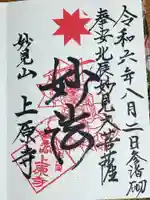 令和六年八月二日参詣砌
奉安北辰妙見大菩薩
妙法
妙見山
上原寺